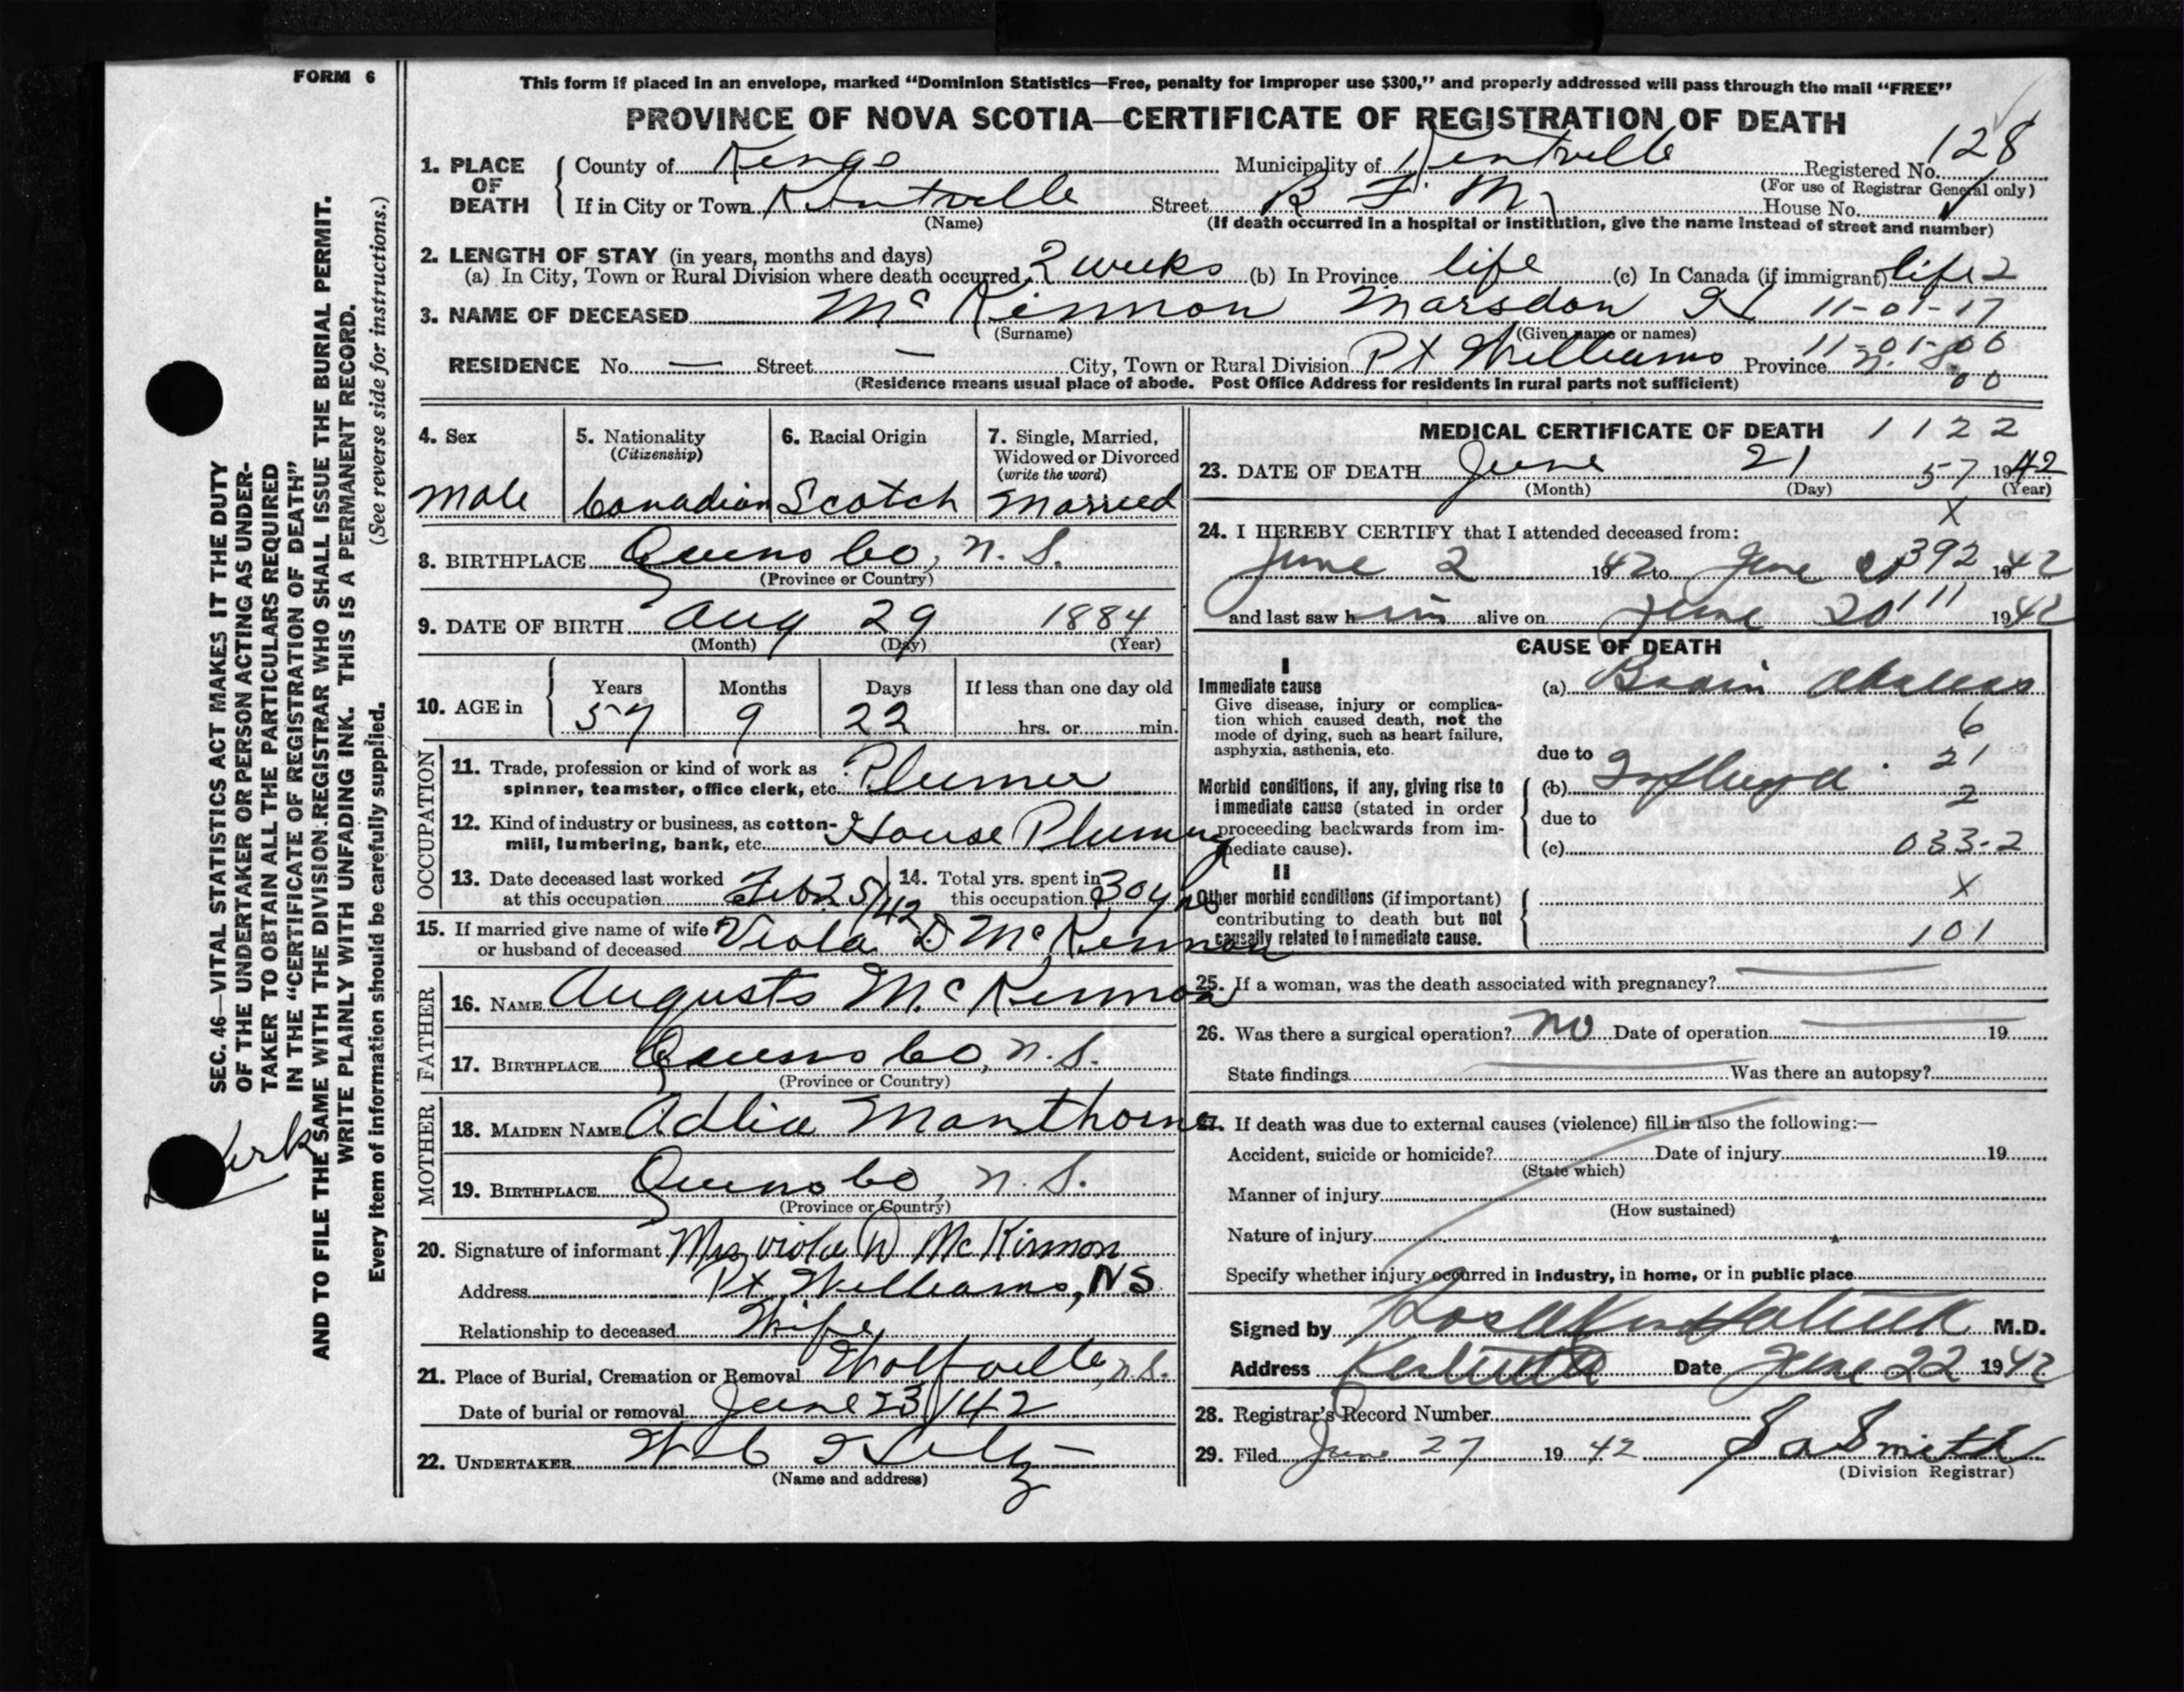 FORM 6
This form if placed in an envelope, marked “Dominion Statistics—Free, penalty for improper use $300,” and properly addressed will pass through the mail “FREE”
PROVINCE OF NOVA SCOTIA—CERTIFICATE OF REGISTRATION OF DEATH
SEC. 46—VITAL STATISTICS ACT MAKES IT THE DUTY
OF THE UNDERTAKER OR PERSON ACTING AS UNDER-
TAKER TO OBTAIN ALL THE PARTICULARS REQUIRED
IN THE “CERTIFICATE OF REGISTRATION OF DEATH”
AND TO FILE THE SAME WITH THE DIVISION REGISTRAR WHO SHALL ISSUE THE BURIAL PERMIT.
WRITE PLAINLY WITH UNFADING INK. THIS IS A PERMANENT RECORD.
Every item of information should be carefully supplied. (See reverse side for instructions.)
1. PLACE OF DEATH County of Kings Municipality of Kentville Registered No. 128
(For use of Registrar General only)
If in City or Town Kentville Street B F M House No.
(Name) (If death occurred in a hospital or institution, give the name instead of street and number)
2. LENGTH OF STAY (in years, months and days)
(a) In City, Town or Rural Division where death occurred 2 weeks (b) In Province life (c) In Canada (if immigrant) life 2
3. NAME OF DECEASED Mc Kinnon Marsdon H 11-01-17
(Surname) (Given name or names)
11-01-06
RESIDENCE No. — Street — City, Town or Rural Division Pt Williams Province N. S.
00
(Residence means usual place of abode. Post Office Address for residents in rural parts not sufficient)
4. Sex
Male
5. Nationality
(Citizenship)
Canadian
6. Racial Origin
Scotch
7. Single, Married,
Widowed or Divorced
(write the word)
Married
8. BIRTHPLACE Queens Co, N. S.
(Province or Country)
9. DATE OF BIRTH Aug 29 1884
(Month) (Day) (Year)
10. AGE in Years Months Days If less than one day old
57 9 22 hrs. or min.
OCCUPATION
11. Trade, profession or kind of work as
spinner, teamster, office clerk, etc. Plumer
12. Kind of industry or business, as cotton-
mill, lumbering, bank, etc. House Pluming
13. Date deceased last worked
at this occupation Feb 25/42
14. Total yrs. spent in
this occupation 30 yrs
15. If married give name of wife
or husband of deceased Viola D McKinnon
FATHER
16. NAME Augusts McKinnon
17. BIRTHPLACE Queens Co, N. S.
(Province or Country)
MOTHER
18. MAIDEN NAME Adlia Manthorne
19. BIRTHPLACE Queens Co, N. S.
(Province or Country)
20. Signature of informant Mrs Viola D McKinnon
Address Pt Williams, NS
Relationship to deceased Wife
21. Place of Burial, Cremation or Removal Wolfville, N.S.
Date of burial or removal June 23/42
22. UNDERTAKER W C
(Name and address)
MEDICAL CERTIFICATE OF DEATH 1122
23. DATE OF DEATH June 21 57 1942
(Month) (Day) (Year)
X
24. I HEREBY CERTIFY that I attended deceased from:
June 2 1942 to June 21 392 1942
and last saw him alive on June 20 111 1942
CAUSE OF DEATH
I
Immediate cause
Give disease, injury or complica-
tion which caused death, not the
mode of dying, such as heart failure,
asphyxia, asthenia, etc.
(a) Brain Abscess
6
due to
21
Morbid conditions, if any, giving rise to
immediate cause (stated in order
proceeding backwards from im-
mediate cause).
(b)
2
due to
(c) 033-2
II
Other morbid conditions (if important)
contributing to death but not
causally related to immediate cause.
X
101
25. If a woman, was the death associated with pregnancy?
26. Was there a surgical operation? No Date of operation 19
State findings Was there an autopsy?
27. If death was due to external causes (violence) fill in also the following:—
Accident, suicide or homicide? Date of injury 19
(State which)
Manner of injury
(How sustained)
Nature of injury
Specify whether injury occurred in industry, in home, or in public place
Signed by M.D.
Address Kentville Date June 22 1942
28. Registrar's Record Number
29. Filed June 27 19 42 Smith
(Division Registrar)